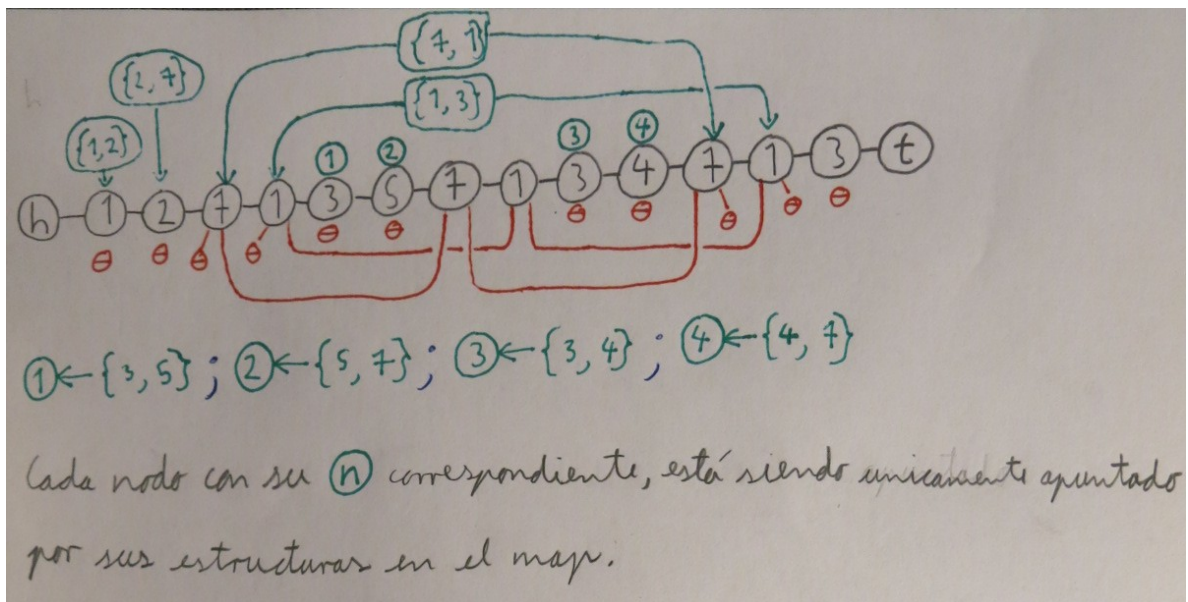 {7, 1}
{2, 7}
{1, 3}
{1,2}
① ② ③ ④
h 1 2 7 1 3 5 7 1 3 4 7 1 3 t
θ θ θ θ θ θ θ θ θ θ θ
①←{3, 5} ; ②←{5, 7} ; ③←{3, 4} ; ④←{4, 7}
Cada nodo con su ⓝ correspondiente, está siendo unicamente apuntado
por sus estructuras en el map.